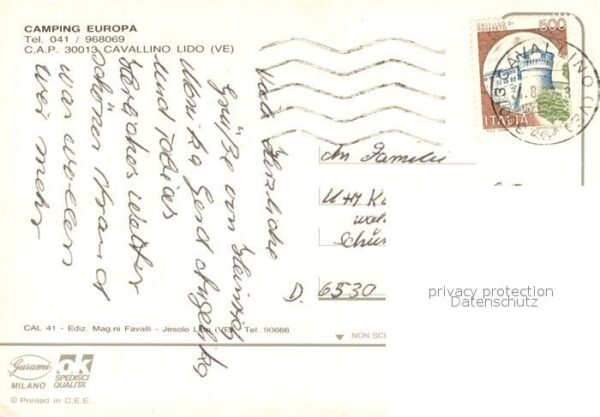 CAMPING EUROPA
Tel. 041 / 968069
C.A.P. 30013 CAVALLINO LIDO (VE)
Viele Herzliche
Grüße von Heinrich
Monika Gerd Angelika
und Tobias
Herrliches Wetter
schöner Strand
was wollen
wir mehr
CASTELLO DI
500
ITALIA
CAVALLINO (VE)
An Familie
D. 6530
privacy protection
Datenschutz
CAL 41 - Ediz. Mag.ni Favalli - Jesolo Lido (VE) Tel. 90666
NON SC
Garami
MILANO
ok
SPEDISCI
QUALITÀ
© Printed in C.E.E.